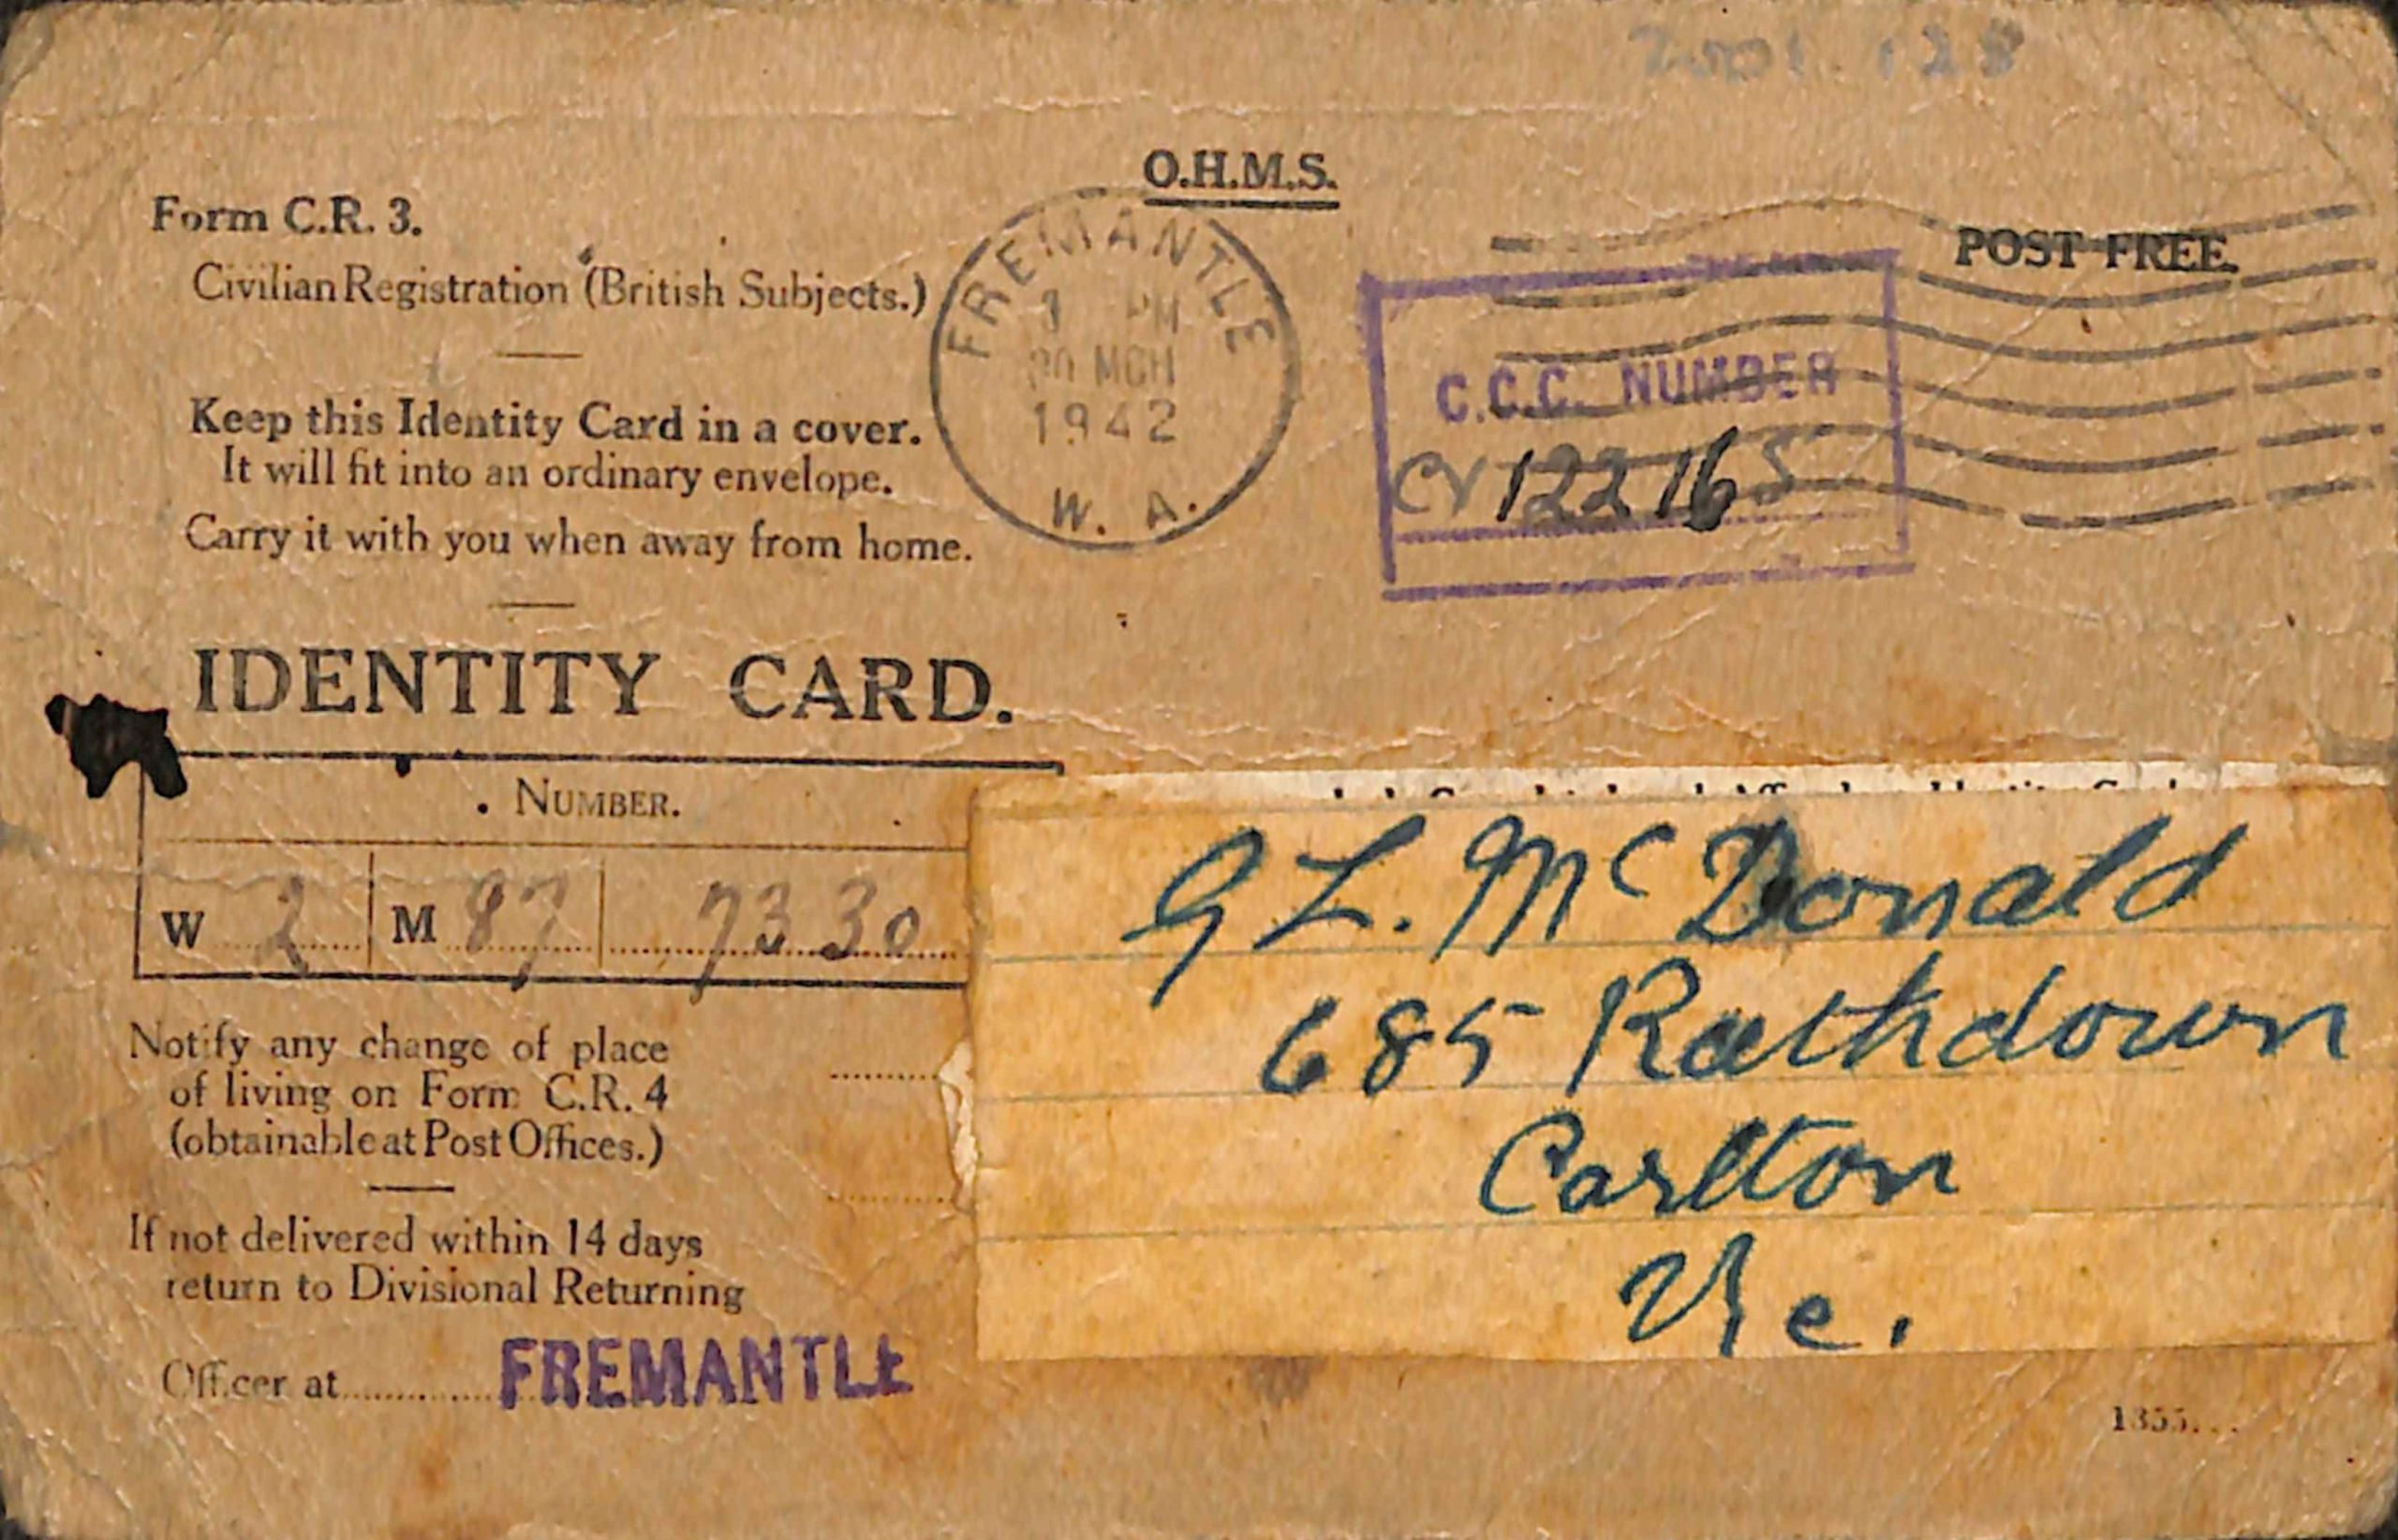 2001.128
O.H.M.S.
Form C.R. 3.
Civilian Registration (British Subjects.)
POST FREE.
FREMANTLE
PM
30 MCH
1942
W. A.
C.C.C. NUMBER
CV 122165
Keep this Identity Card in a cover.
It will fit into an ordinary envelope.
Carry it with you when away from home.
IDENTITY CARD.
NUMBER.
W 2 M 87 7330
G L. McDonald
685 Rathdown
Carlton
Vic.
Notify any change of place
of living on Form C.R. 4
(obtainable at Post Offices.)
If not delivered within 14 days
return to Divisional Returning
Officer at FREMANTLE